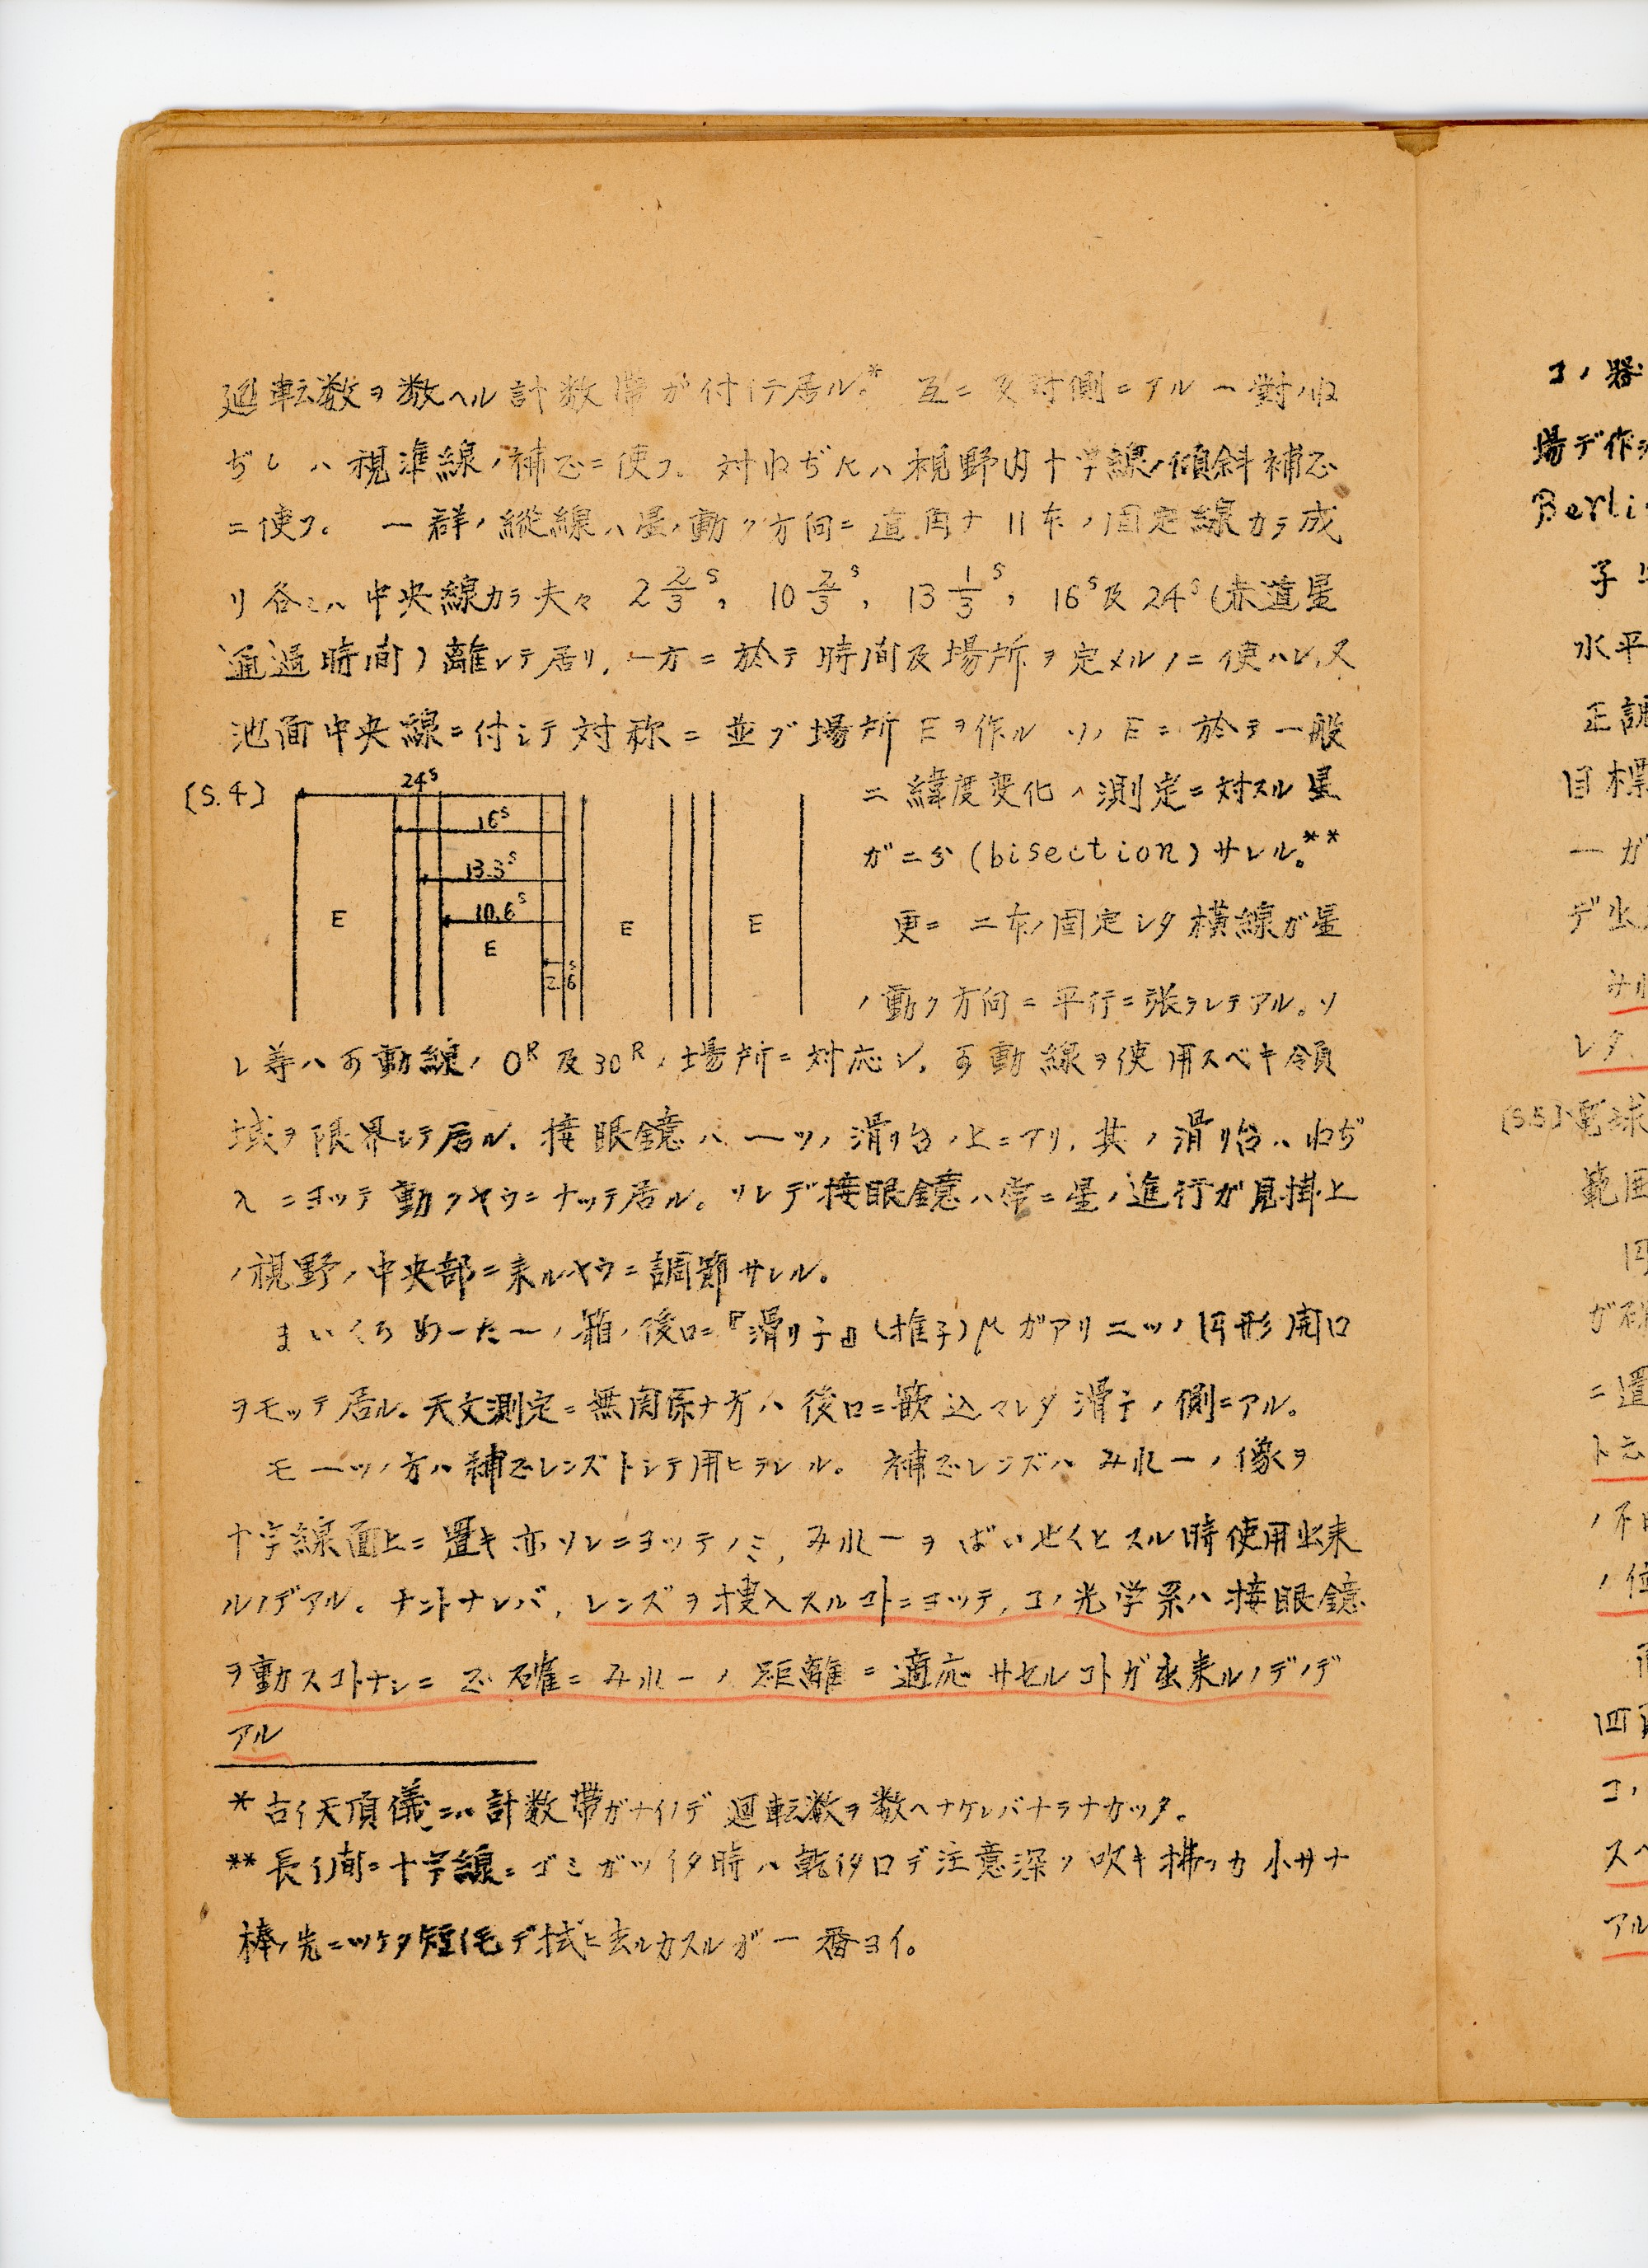 廻転数ヲ数ヘル計数帯ガ付イテ居ル。* 互ニ反対側ニアル一對ノね
ぢ L ハ視準線ノ補正ニ使フ。対ねぢ K ハ視野内十字線ノ傾斜補正
ニ使フ。 一群ノ縦線ハ星ノ動ク方向ニ直角ナ 11本ノ固定線カラ成
リ各々ハ中央線カラ夫々 2 2/3 s, 10 2/3 s, 13 1/3 s, 16s及24s(赤道星
通過時間)離レテ居リ,一方ニ於テ時間及場所ヲ定メルノニ使ハレ,又
他面中央線ニ付シテ対称ニ並ブ場所 Eヲ作ル ソノ Eニ於テ一般
[S.4]
24s
16s
13.3s
10.6s
2.6s
E
E
E
E
ニ緯度変化ノ測定ニ対スル星
ガ二分(bisection)サレル。**
更ニ 二本ノ固定シタ横線ガ星
ノ動ク方向ニ平行ニ張ラレテアル。ソ
レ等ハ可動線ノ 0R 及 30R ノ場所ニ対応シ,可動線ヲ使用スベキ領
域ヲ限界シテ居ル. 接眼鏡ハ一ツノ滑リ台ノ上ニアリ,其ノ滑リ台ハねぢ
λ ニヨッテ動クヤウニナッテ居ル。ソレデ接眼鏡ハ常ニ星ノ進行ガ見掛上
ノ視野ノ中央部ニ来ルヤウニ調節サレル。
まいくろめーたーノ箱ノ後ロニ『滑リ子』(推子)μ ガアリ二ツノ円形開口
ヲモッテ居ル. 天文測定ニ無関係ナ方ハ後ロニ嵌込マレタ滑子ノ側ニアル。
モ一ツノ方ハ補正レンズトシテ用ヒラレル。 補正レンズハみれーノ像ヲ
十字線面上ニ置キ亦ソレニヨッテノミ, みれーヲばいせくとスル時使用出来
ルノデアル. ナントナレバ, レンズヲ挿入スルコトニヨッテ,コノ光学系ハ接眼鏡
ヲ動カスコトナシニ 正確ニみれーノ距離ニ適応サセルコトガ出来ルノデノデ
アル
* 古イ天頂儀ニハ計数帯ガナイノデ廻転数ヲ数ヘナケレバナラナカッタ。
** 長イ間ニ十字線ニゴミガツイタ時ハ乾イタ口デ注意深ク吹キ拂フカ小サナ
棒ノ先ニツケタ短イ毛デ拭ヒ去ルカスルガ一番ヨイ。
コノ器
場デ作
Berli
水平
目標
一ガ
デ出
レタ.
[S.5]電球
範囲
ガ
ニ置
ト云
ノ不
ノ位
四
コノ
スペ
アル